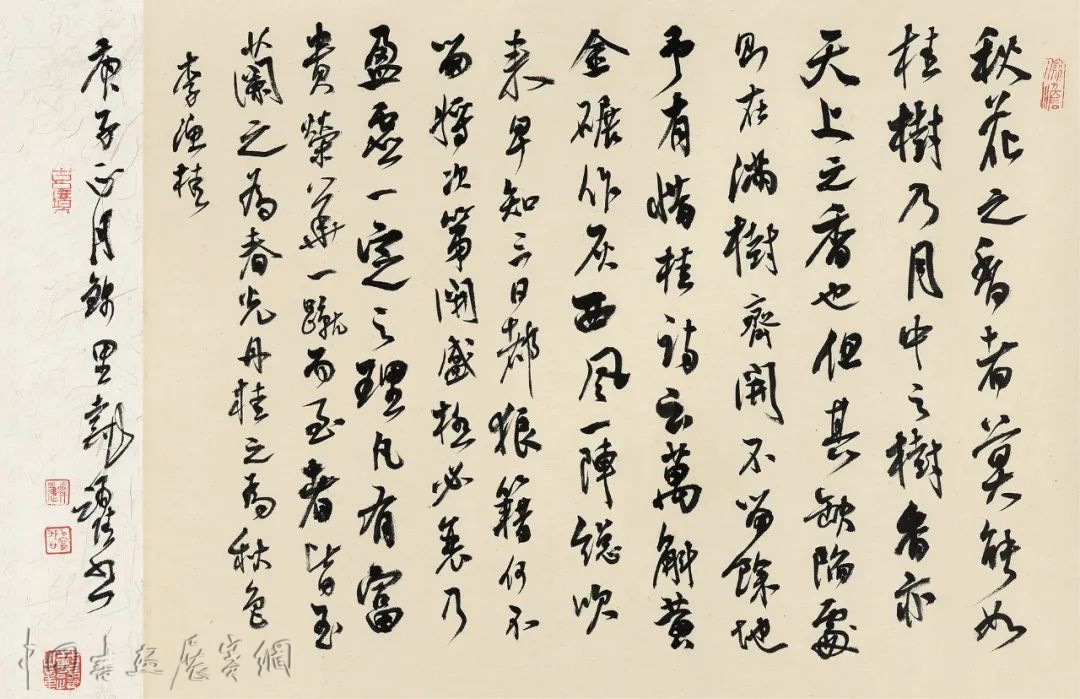 秋花之香者莫能如
桂樹乃月中之樹香亦
天上之香也但其缺陷處
則在滿樹齊開不留餘地
予有惜桂詩云萬斛黃
金碾作灰西風一陣總吹
來早知三日都狼籍何不
留將次第開盛極必衰乃
盈虛一定之理凡有富
貴榮華一蹴而至者皆玉
蘭之為春光丹桂之為秋色
李漁桂
庚子正月錦里
中國書法展賽網